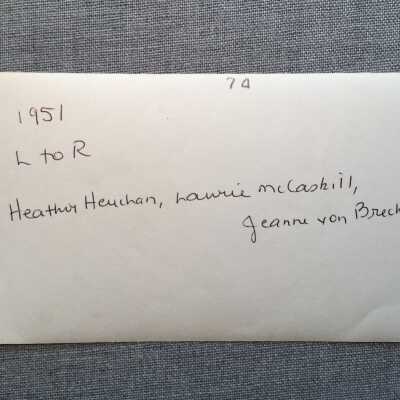 7A
1951
L to R
Heather Heuchan, Laurie McCaskill,
Jeanne von Brech